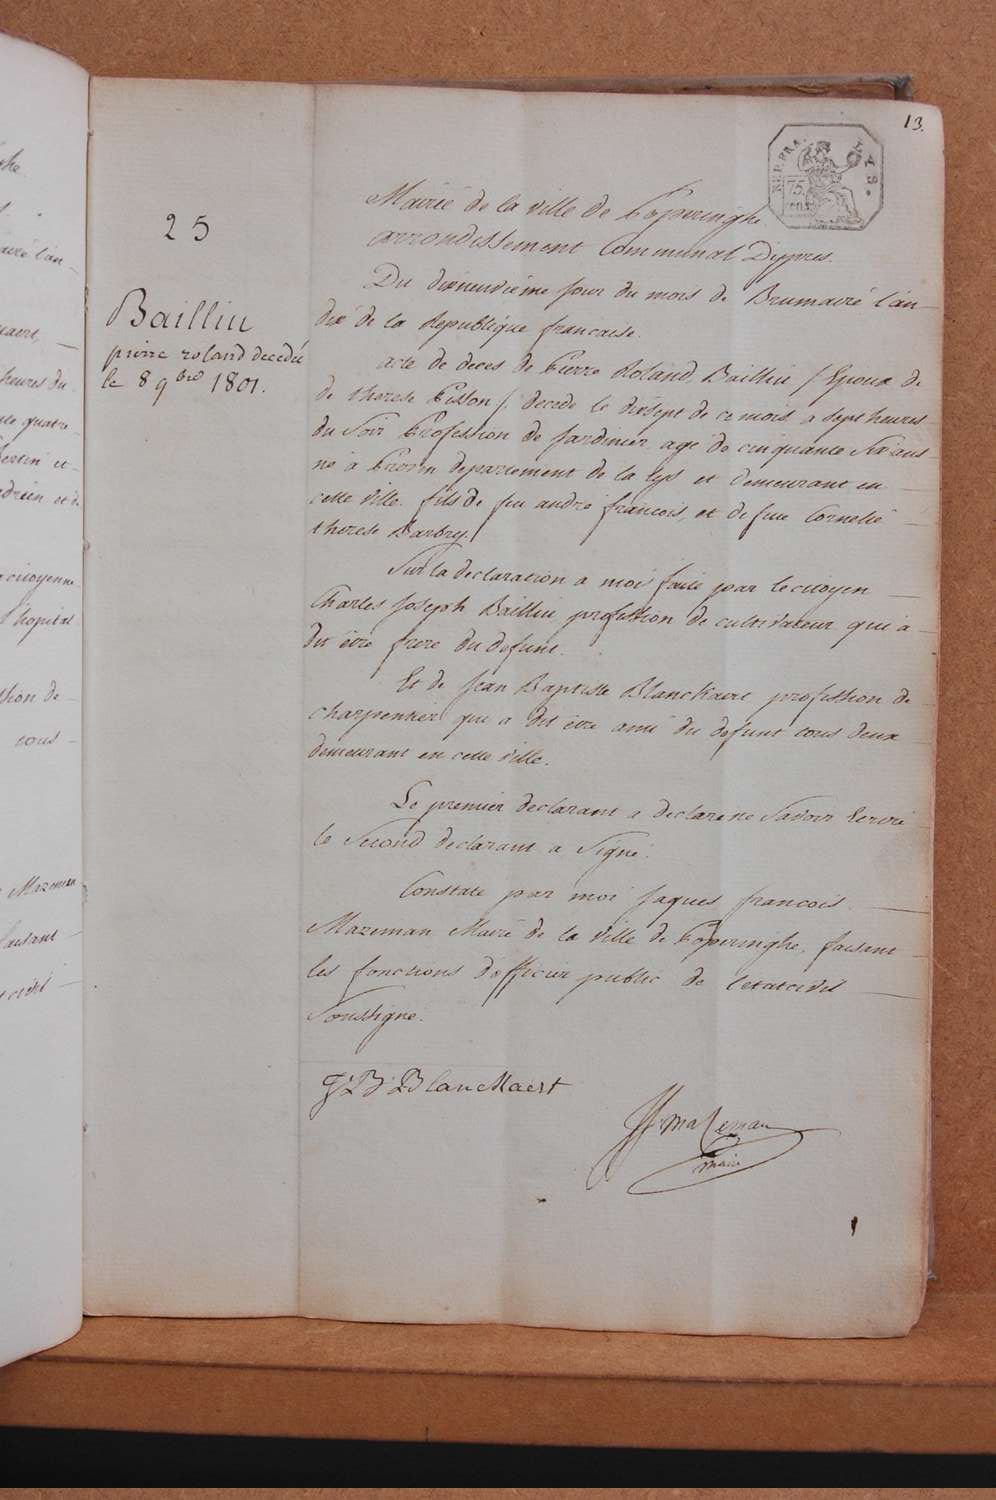 13.
REP. FRA.
LYS.
75.
CENT.
25
Bailliu
pierre roland decedé
le 8 9bre 1801.
Mairie de la ville de Poperinghe
arrondissement Communal Dyppres.
Du dixneuvieme jour du mois de Brumaire l'an
dix de la Republique francaise.
acte de deces de Pierre Roland Bailliu / Epoux de
de therese Pisson /. decede le dixsept de ce mois a sept heures
du Soir Profession de Jardinier, agé de cinquante Six ans
né à departement de la Lys et demeurant en
cette ville. fils de feu andré francois, et de feue Cornelie
therese Barbry.
Sur la declaration a moi faite par le citoyen
Charles Joseph Bailliu profession de cultivateur qui a
dit être frere du defunt.
Et de Jean Baptiste Blanckaert profession de
charpentier qui a dit être ami du defunt tous deux
demeurant en cette ville.
Le premier declarant a declare ne Savoir Ecrire
le Second declarant a Signé.
Constaté par moi Jaques francois
Mazeman Maire de la ville de Poperinghe, faisant
les fonctions d'officier public de l'etat civil
Soussigné.
J. B. Blanckaert
JF mazeman
maire